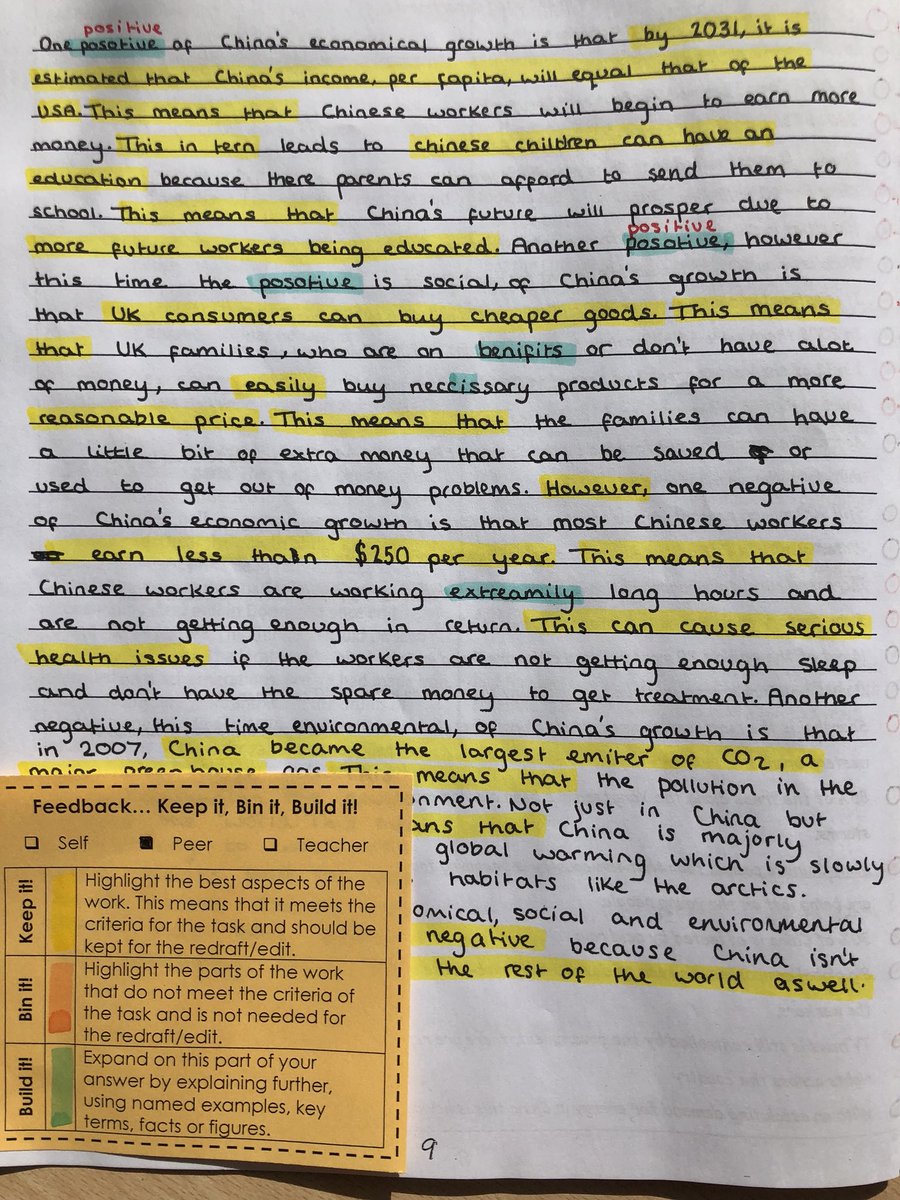 positive
One posotive of China's economical growth is that by 2031, it is
estimated that China's income, per capita, will equal that of the
USA. This means that Chinese workers will begin to earn more
money. This in tern leads to chinese children can have an
education because there parents can afford to send them to
school. This means that China's future will prosper due to
positive
more future workers being educated. Another posotive, however
this time the posotive is social, of China's growth is
that UK consumers can buy cheaper goods. This means
that UK families, who are on benifits or don't have alot
of money, can easily buy neccissary products for a more
reasonable price. This means that the families can have
a little bit of extra money that can be saved or
used to get out of money problems. However, one negative
of China's economic growth is that most Chinese workers
earn less than $250 per year. This means that
Chinese workers are working extreamily long hours and
are not getting enough in return. This can cause serious
health issues if the workers are not getting enough sleep
and don't have the spare money to get treatment. Another
negative, this time environmental, of China's growth is that
in 2007, China became the largest emiter of CO2, a
major greenhouse gas This means that the pollution in the
onment. Not just in China but
ans that China is majorly
global warming which is slowly
habitats like the arctics.
omical, social and environmental
negative because China isn't
the rest of the world aswell.
Feedback... Keep it, Bin it, Build it!
Self Peer Teacher
Keep it!
Highlight the best aspects of the
work. This means that it meets the
criteria for the task and should be
kept for the redraft/edit.
Bin it!
Highlight the parts of the work
that do not meet the criteria of
the task and is not needed for
the redraft/edit.
Build it!
Expand on this part of your
answer by explaining further,
using named examples, key
terms, facts or figures.
9